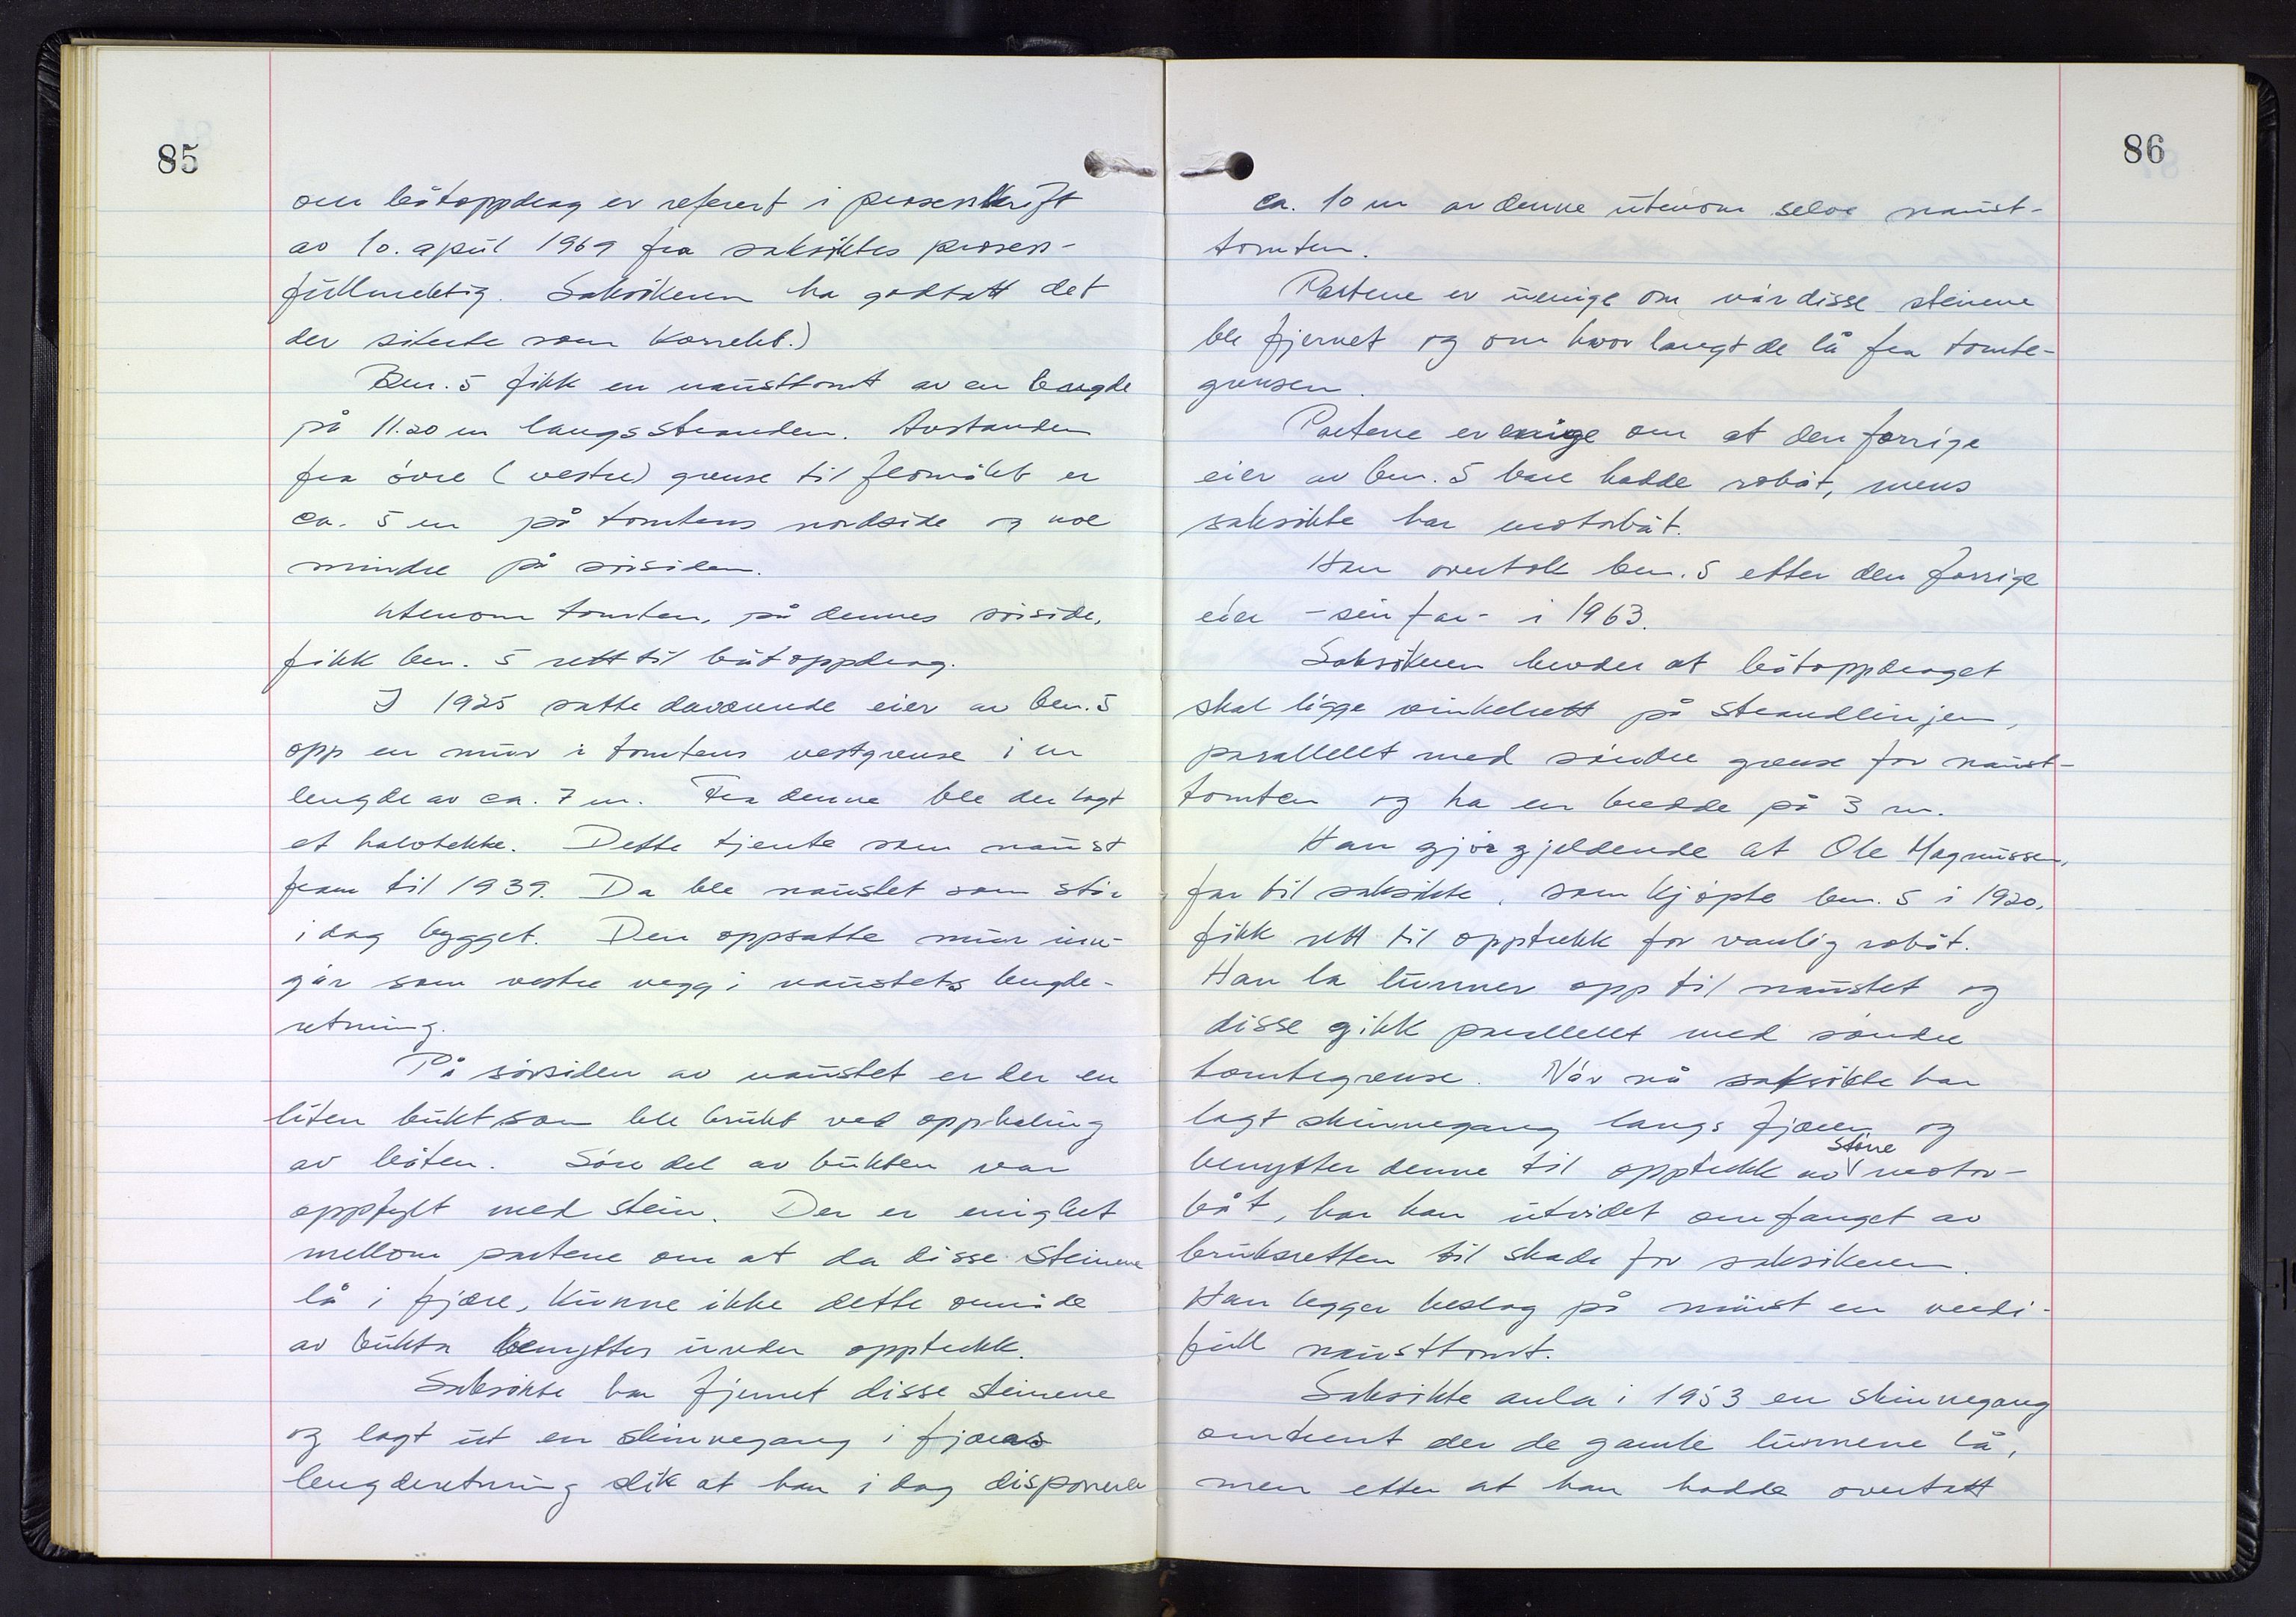 85
om båtoppdrag er referert i prosesskrift
av 10. april 1969 fra saksøktes prosess-
fullmektig. Saksøkeren har godtatt det
der siterte som korrekt.)
Bnr. 5 fikk en nausttomt av en lengde
på 11.20 m langs stranden. Avstanden
fra øvre (vestre) grense til flomålet er
ca. 5 m på tomtens nordside og noe
mindre på sørsiden.
Utenom tomten, på dennes sørside,
fikk bnr. 5 rett til båtoppdrag.
I 1925 satte daværende eier av bnr. 5
opp en mur i tomtens vestgrense i en
lengde av ca. 7 m. Fra denne ble der lagt
et halvtekke. Dette tjente som naust
fram til 1939. Da ble naustet som står
i dag bygget. Den oppsatte mur inn-
går som vestre vegg i naustets lengde-
retning.
På sørsiden av naustet er der en
liten bukt som ble brukt ved opphaling
av båten. Søre del av bukten var
oppfylt med stein. Der er enighet
mellom partene om at da disse steinene
lå i fjære, kunne ikke dette område
av bukta benyttes under opptrekk.
Saksøkte har fjernet disse steinene
og lagt ut en skinnegang i fjæras
lengderetning slik at han i dag disponerer
86
ca. 10 m av denne utenom selve naust-
tomten.
Partene er uenige om når disse steinene
ble fjernet og om hvor langt de lå fra tomte-
grensen.
Partene er enige om at den forrige
eier av bnr. 5 bare hadde robåt, mens
saksøkte har motorbåt.
Han overtok bnr. 5 etter den forrige
eier - sin far - i 1963.
Saksøkeren hevder at båtoppdraget
skal ligge vinkelrett på strandlinjen,
parallellt med søndre grense for naust-
tomten og ha en bredde på 3 m.
Han gjør gjeldende at Ole Magnussen,
far til saksøkte, som kjøpte bnr. 5 i 1920,
fikk rett til opptrekk for vanlig robåt.
Han la lunner opp til naustet og
disse gikk parallellt med søndre
tomtegrense. Når nå saksøkte har
lagt skinnegang langs fjæren og
benytter denne til opptrekk av større motor-
båt, har han utvidet omfanget av
bruksretten til skade for saksøkeren.
Han legger beslag på minst en verdi-
full nausttomt.
Saksøkte anla i 1953 en skinnegang
omtrent der de gamle lunnene lå,
men etter at han hadde overtatt